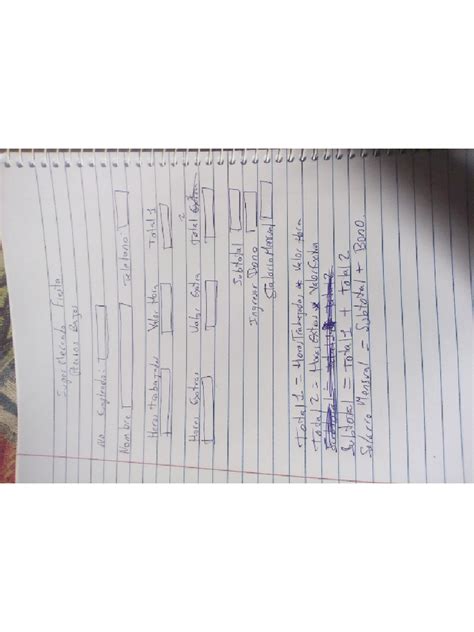 Super Mercado Fiesta
Precios Bajos
No Empleado:
Nombre Telefono:
Horas trabajadas Valor Hora Total 1
Horas Extras Valor Extra Total Extra 2
Subtotal
Ingresar Bono
Salario Mensual
Total 1 = Horas Trabajadas * Valor Hora
Total 2 = Horas Extras * Valor Extra
Subtotal = Total 1 + Total 2
Salario Mensual = Subtotal + Bono